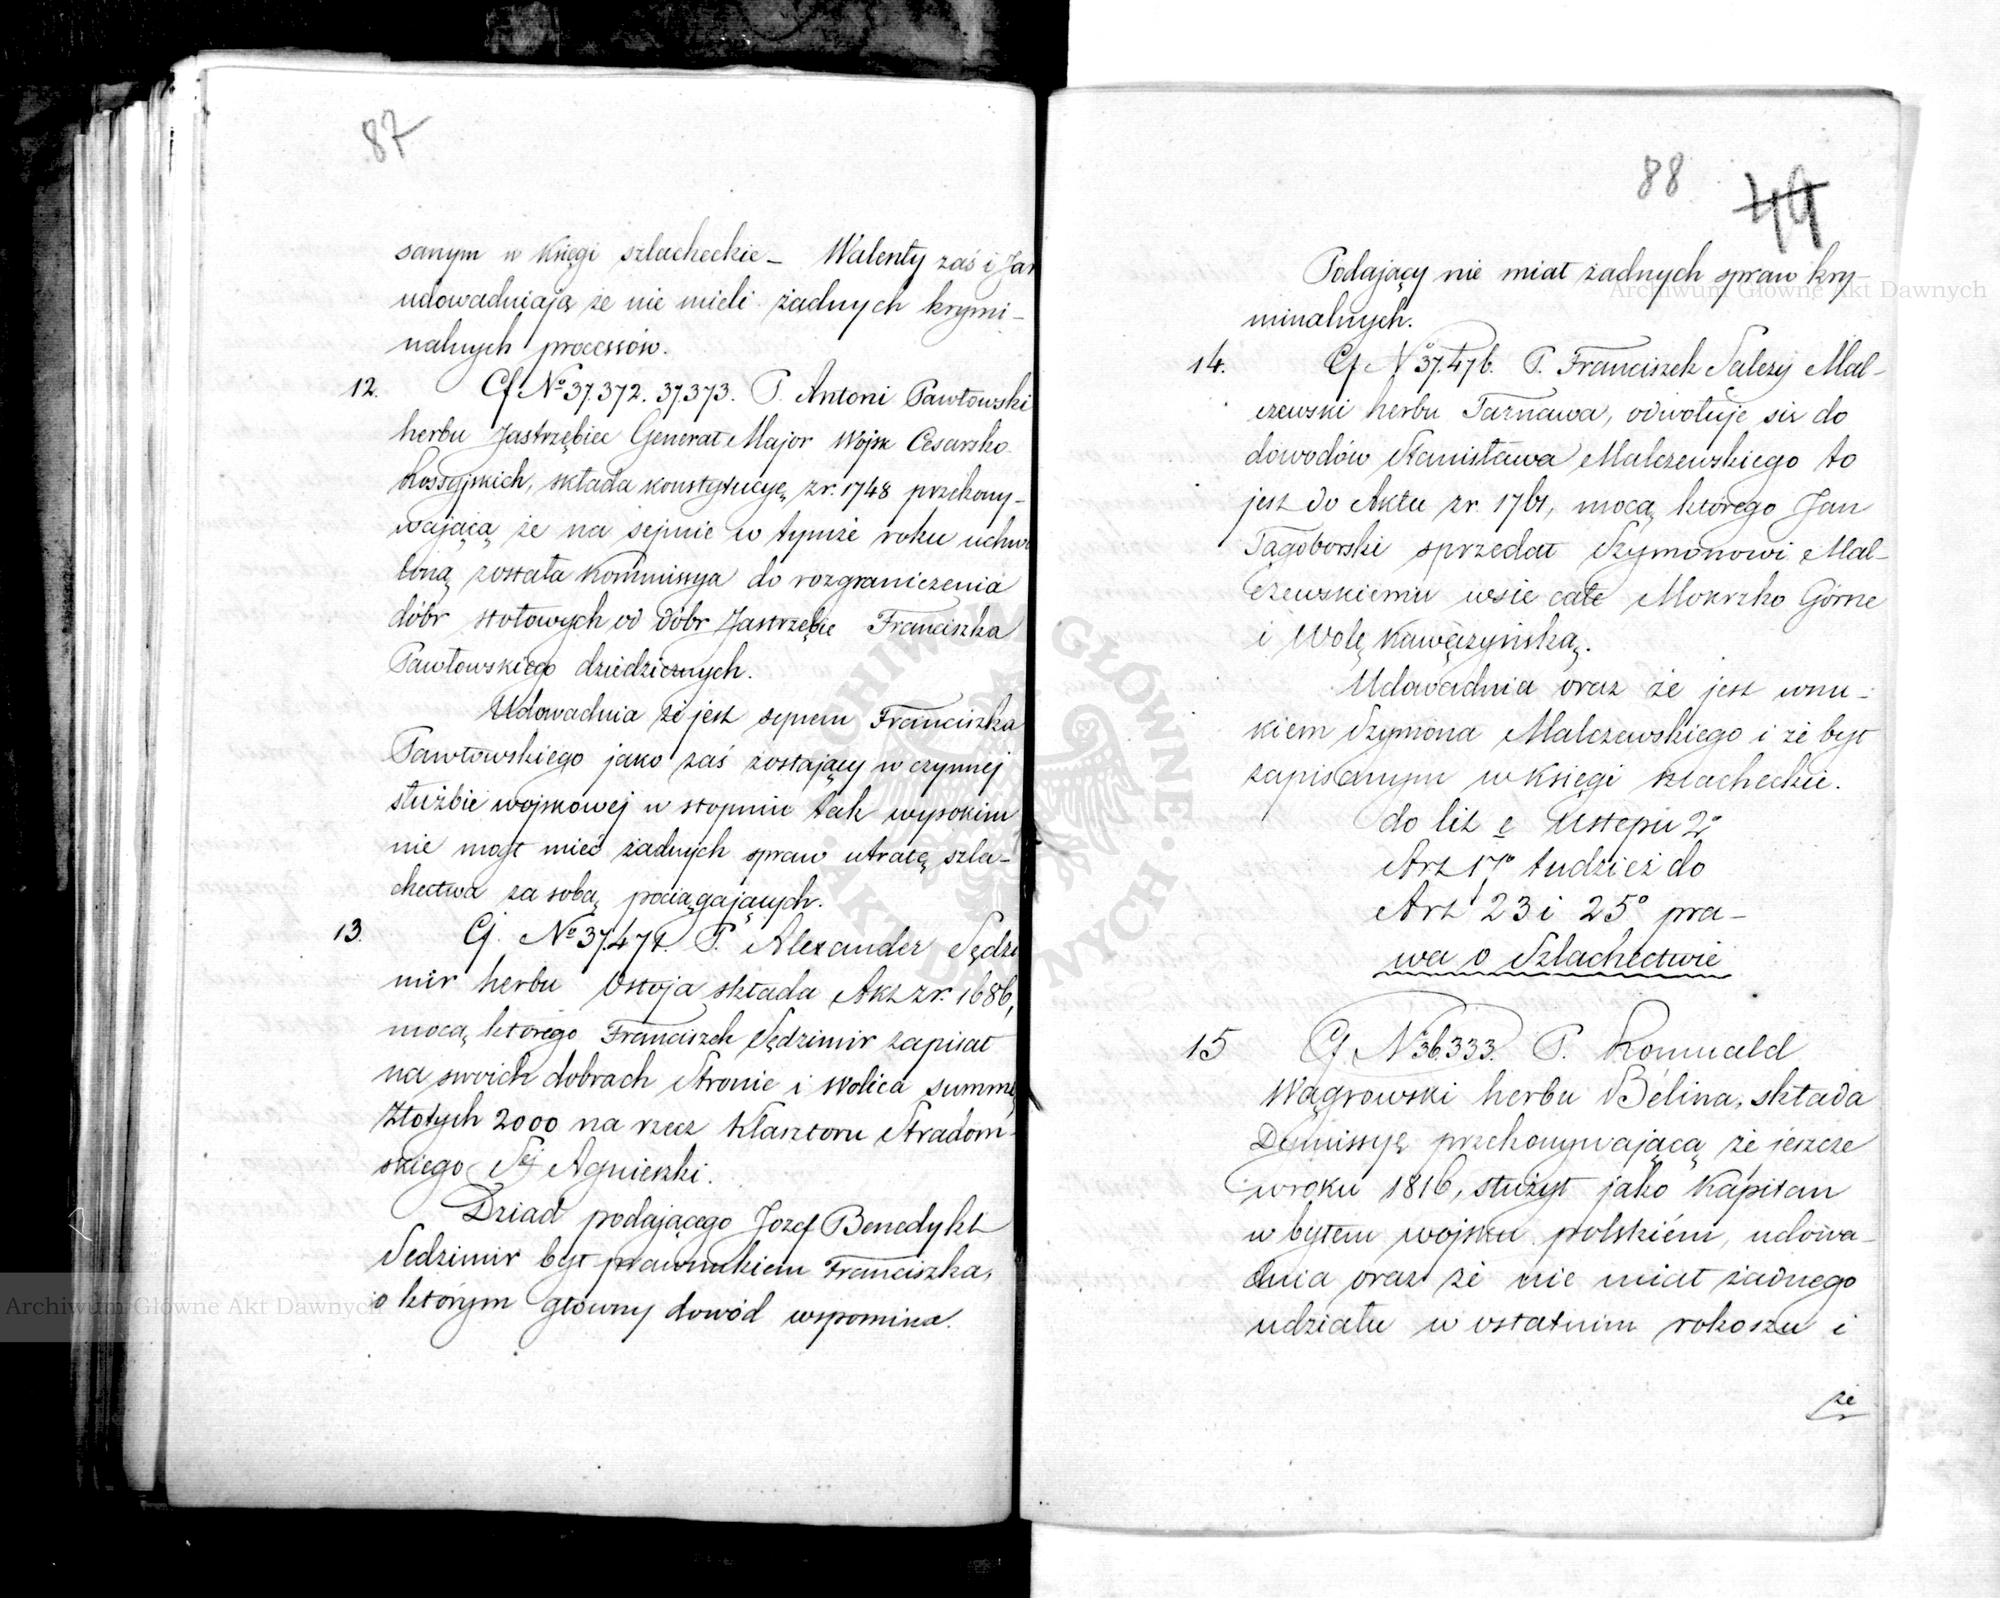 87
sanym w Księgi szlacheckie – Walenty zaś i Jan
udowadniają że nie mieli żadnych krymi–
nalnych processów.
12. Cf № 37.372. 37.373. P. Antoni Pawłowski
herbu Jastrzębiec Generał Major Wojsk Cesarsko
Rossyjskich, składa konstytucyę z r. 1748 przekony–
wającą że na sejmie w tymże roku uchwa
loną została Kommissya do rozgraniczenia
dóbr stołowych od dóbr Jastrzębie Franciszka
Pawłowskiego dziedzicznych.
Udowadnia że jest synem Franciszka
Pawłowskiego jako zaś zostający w czynnej
służbie wojskowej w stopniu tak wysokim
nie mógł mieć żadnych spraw utratę szla–
chectwa za sobą pociągających.
13. Cf. № 37.474. P. Alexander Sędzi
mir herbu Ostoja składa Akt z r. 1686,
mocą którego Franciszek Sędzimir zapisał
na swoich dobrach Stronie i Wolica summę
Złotych 2000 na rzecz Klasztoru Stradom–
skiego Sej Agnieszki.
Dziad podającego Jozef Benedykt
Sedzimir był prawnukiem Franciszka,
o którym główny dowód wspomina.
88
44
Podający nie miał żadnych spraw kry–
minalnych.
14. Cf № 37.476. P. Franciszek Salezy Mal–
czewski herbu Tarnawa, odwołuje się do
dowodów Stanisława Malczewskiego to
jest do Aktu z r. 1761, mocą którego Jan
Tagoborski sprzedał Szymonowi Mal–
czewskiemu wsie całe Mokrzko Górne
i Wolę Kawęczyńską.
Udowadnia oraz że jest wnu–
kiem Szymona Malczewskiego i że był
zapisanym w Księgi szlacheckie.
do lit e Ustępu 2º
Art 17º tudzież do
Art 23 i 25º pra–
wa o Szlachectwie
15 Cf № 36.333. P. Romuald
Wągrowski herbu Belina, składa
Dymissyę przekonywającą że jeszcze
w roku 1816, służył jako Kapitan
w byłem wojsku polskiém, udowa–
dnia oraz że nie miał żadnego
udziału w ostatnim rokoszu i
że
Archiwum Główne Akt Dawnych
Archiwum Główne Akt Dawnych
ARCHIWUM GŁÓWNE AKT DAWNYCH